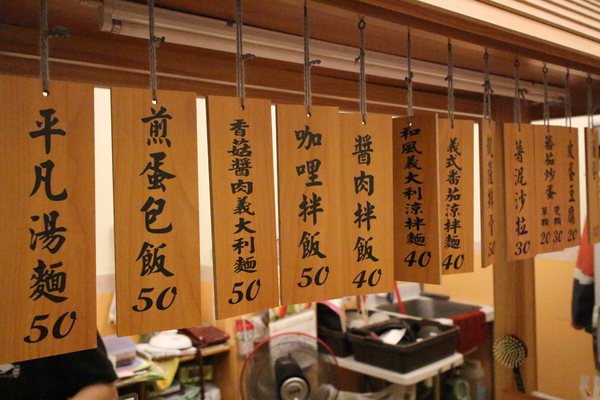 平凡湯麵 50
煎蛋包飯 50
香菇醬肉義大利麵 50
咖哩拌飯 50
醬肉拌飯 40
和風義大利涼拌麵 40
義式番茄涼拌麵 40
薯泥沙拉 30
蕃茄炒蛋 單顆 20 雙顆 30
皮蛋豆腐 20